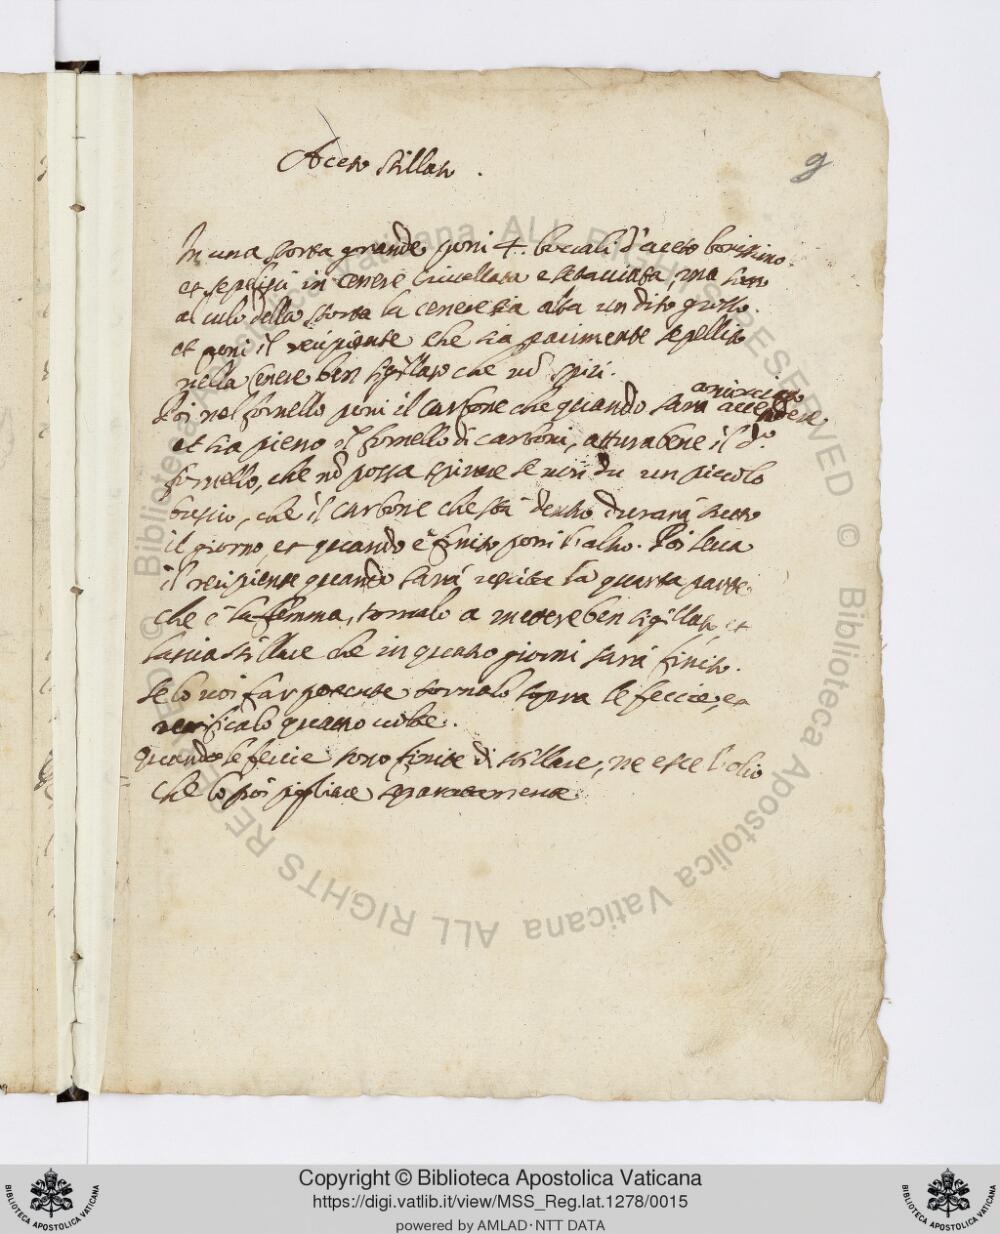 Aceto stillato.
9
In una storta grande poni 4. boccali d'aceto bonissimo.
et sepelissi in cenere crivellata e setacciata, ma sotto
al culo della storta la cenere sia alta un dito grosso.
et poni il recipiente che sia parimente sepellito
nella cenere ben sigillato che nō spiri.
Poi nel fornello poni il carbone che quando sarà
et sia pieno il fornello di carboni, attura bene il d.º
fornello, che nō possa spirare se non da un piccolo
buscio, che il carbone che stà dentro durarà tutto
il giorno, et quando è finito poni l'altro. Poi leva
il recipiente quando sarà uscita la quarta parte
che è la flemma, tornalo a mettere ben sigillato, et
lascia stillare che in quatro giorni sarà finito.
se lo voi far potente tornalo sopra le feccie, et
retificalo quatro volte.
Quando le feccie sono finite di stillare, ne esce l'olio
che lo poi pigliare separatamente.
Copyright © Biblioteca Apostolica Vaticana
https://digi.vatlib.it/view/MSS_Reg.lat.1278/0015
powered by AMLAD·NTT DATA
BIBLIOTECA APOSTOLICA VATICANA
BIBLIOTECA APOSTOLICA VATICANA